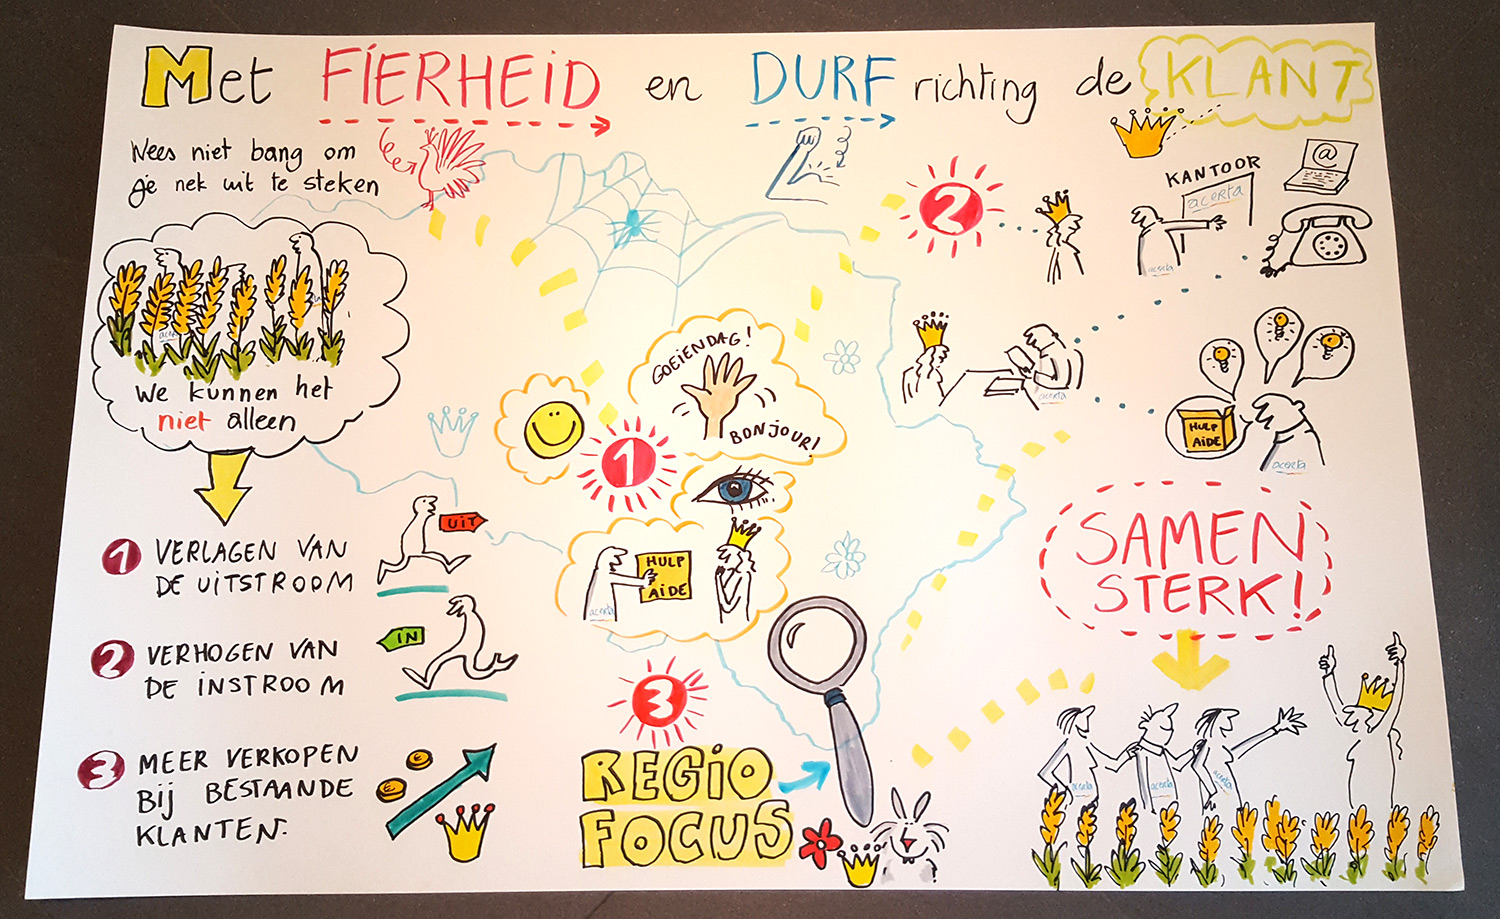 Met FIERHEID en DURF richting de KLANT
Wees niet bang om
je nek uit te steken
acerta
We kunnen het
niet alleen
1 VERLAGEN VAN
DE UITSTROOM
UIT
2 VERHOGEN VAN
DE INSTROOM
IN
3 MEER VERKOPEN
BIJ BESTAANDE
KLANTEN.
€
€
GOEIENDAG!
BONJOUR!
1
HULP
AIDE
acerta
3
REGIO
FOCUS
2
KANTOOR
acerta
acerta
@
acerta
HULP
AIDE
acerta
SAMEN
STERK!
acerta
acerta
acerta